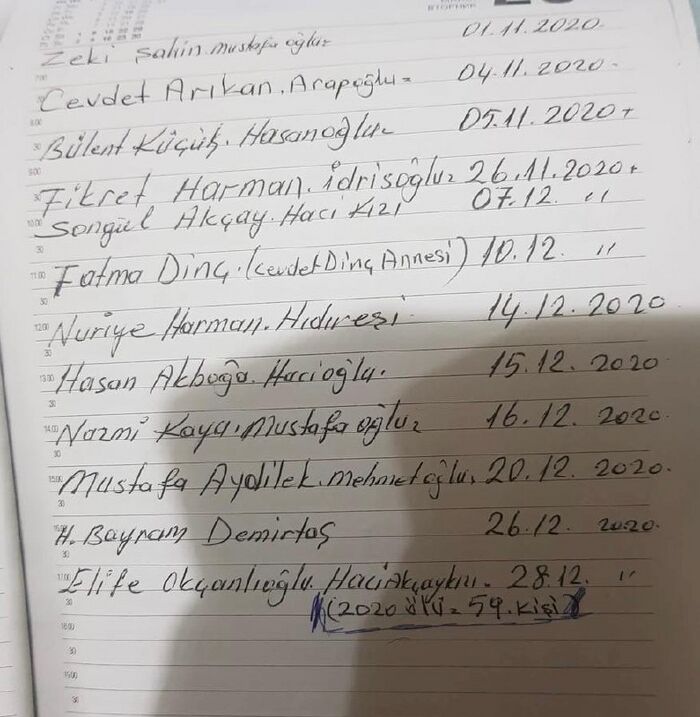 ВТОРНИК
Zeki Şahin. Mustafa oğlu= 01.11.2020
Cevdet Arıkan. Arapoğlu= 04.11.2020
Bülent Küçük. Hasanoğlu= 05.11.2020+
Fikret Harman. idrisoğlu= 26.11.2020+
Songül Akçay. Hacı Kızı 07.12. "
Fatma Dinç. (Cevdet Dinç Annesi) 10.12. "
Nuriye Harman. Hıdıreşi 14.12.2020
Hasan Akboğa. Hacioğlu. 15.12.2020
Nazmi Kaya. Mustafa oğlu= 16.12.2020
Mustafa Aydilek. Mehmetoğlu. 20.12.2020.
H. Bayram Demirtaş 26.12. 2020.
Elife Okçanlıoğlu. Hacı Akçaykızı. 28.12. "
(2020 ölü= 59. Kişi)